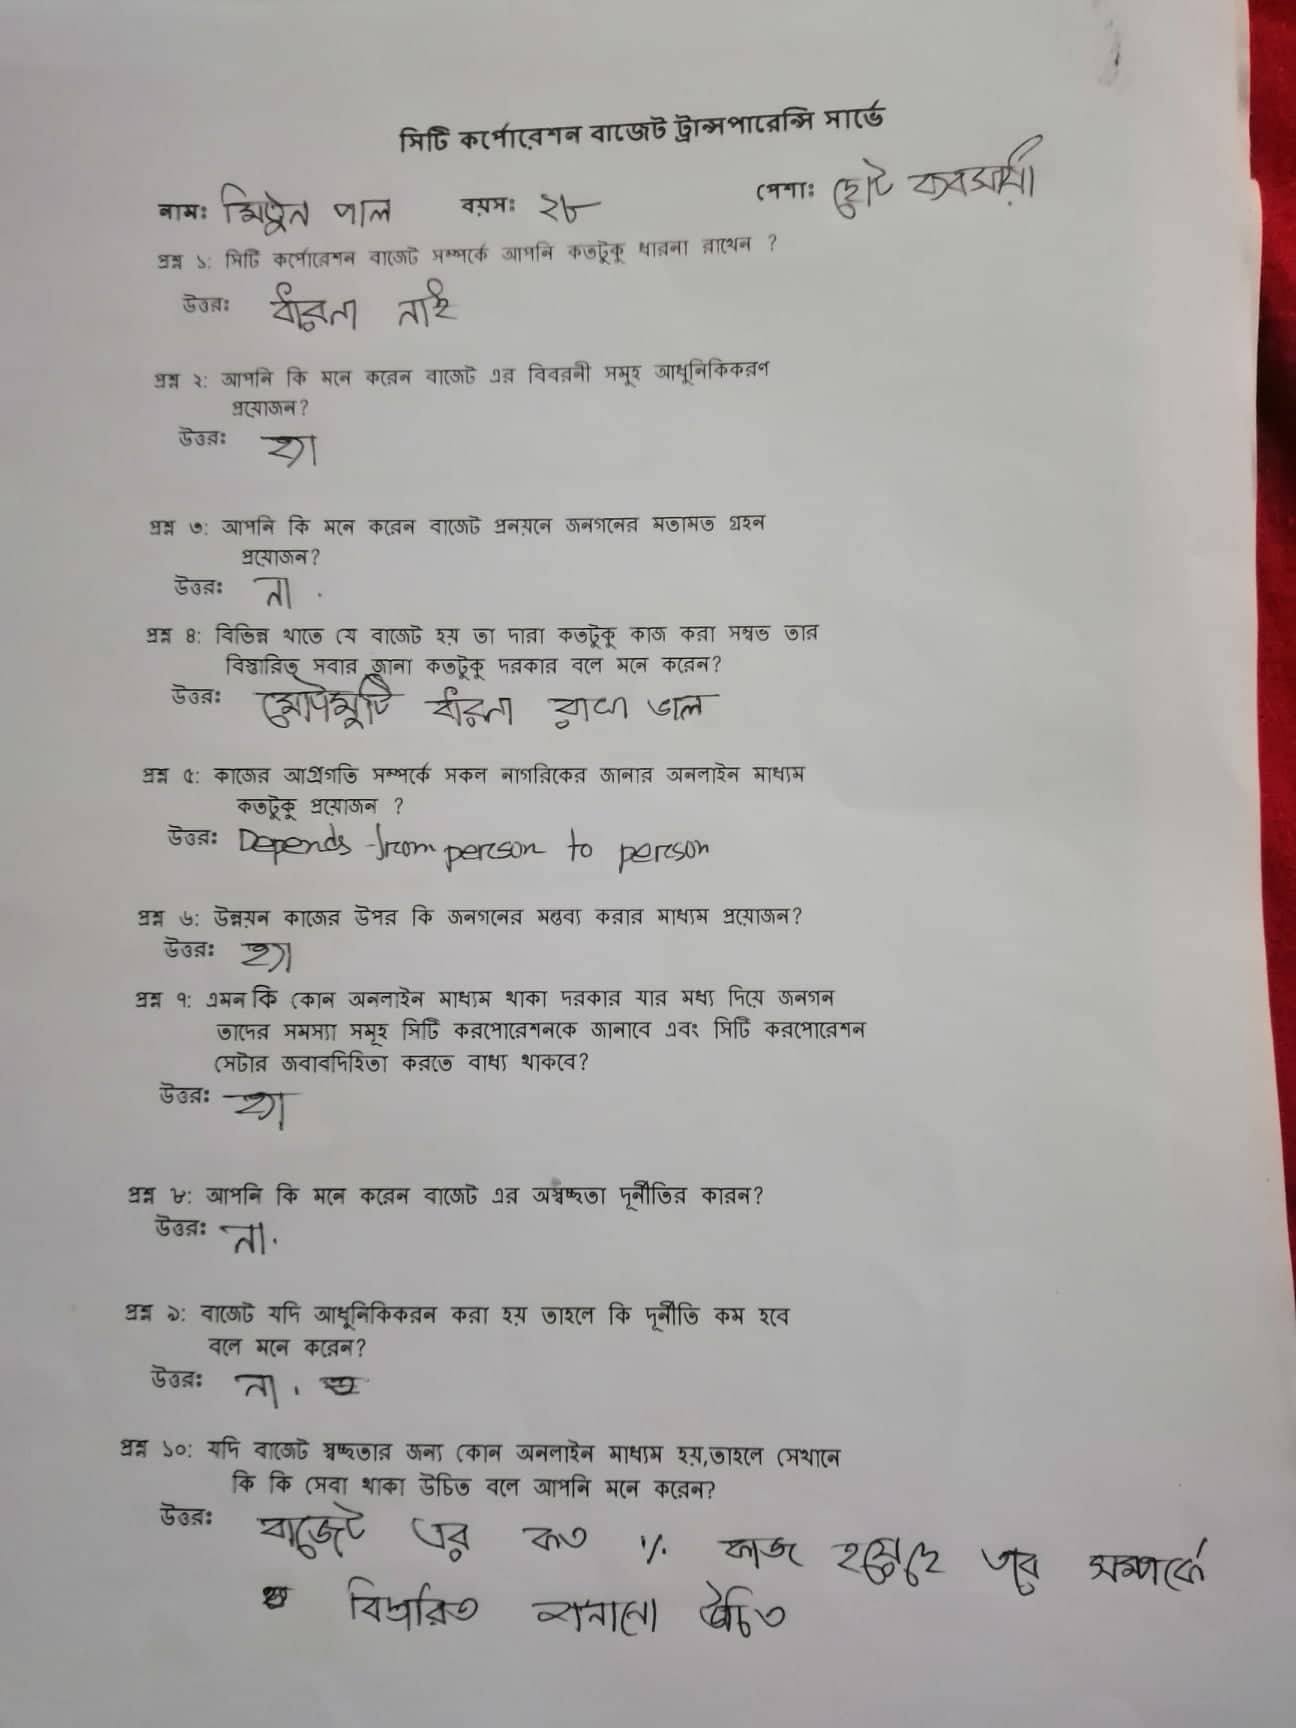 সিটি কর্পোরেশন বাজেট ট্রান্সপারেন্সি সার্ভে
নামঃ মিঠুন পাল বয়সঃ ২৮ পেশাঃ ছোট ব্যবসায়ী
প্রশ্ন ১: সিটি কর্পোরেশন বাজেট সম্পর্কে আপনি কতটুকু ধারনা রাখেন ?
উত্তরঃ ধারনা নাই
প্রশ্ন ২: আপনি কি মনে করেন বাজেট এর বিবরনী সমূহ আধুনিকিকরণ
প্রয়োজন?
উত্তরঃ হ্যা
প্রশ্ন ৩: আপনি কি মনে করেন বাজেট প্রনয়নে জনগনের মতামত গ্রহন
প্রয়োজন?
উত্তরঃ না .
প্রশ্ন ৪: বিভিন্ন খাতে যে বাজেট হয় তা দারা কতটুকু কাজ করা সম্বভ তার
বিস্তারিত সবার জানা কতটুকু দরকার বলে মনে করেন?
উত্তরঃ মোটামুটি ধারনা রাখা ভাল
প্রশ্ন ৫: কাজের আগ্রগতি সম্পর্কে সকল নাগরিকের জানার অনলাইন মাধ্যম
কতটুকু প্রয়োজন ?
উত্তরঃ Depends from person to person
প্রশ্ন ৬: উন্নয়ন কাজের উপর কি জনগনের মন্তব্য করার মাধ্যম প্রয়োজন?
উত্তরঃ হ্যা
প্রশ্ন ৭: এমন কি কোন অনলাইন মাধ্যম থাকা দরকার যার মধ্য দিয়ে জনগন
তাদের সমস্যা সমূহ সিটি করপোরেশনকে জানাবে এবং সিটি করপোরেশন
সেটার জবাবদিহিতা করতে বাধ্য থাকবে?
উত্তরঃ হ্যা
প্রশ্ন ৮: আপনি কি মনে করেন বাজেট এর অস্বচ্ছতা দূর্নীতির কারন?
উত্তরঃ না.
প্রশ্ন ৯: বাজেট যদি আধুনিকিকরন করা হয় তাহলে কি দূর্নীতি কম হবে
বলে মনে করেন?
উত্তরঃ না .
প্রশ্ন ১০: যদি বাজেট স্বচ্ছতার জন্য কোন অনলাইন মাধ্যম হয়,তাহলে সেখানে
কি কি সেবা থাকা উচিত বলে আপনি মনে করেন?
উত্তরঃ বাজেট এর কত % কাজ হয়েছে তার সম্পর্কে
বিস্তারিত জানানো উচিত